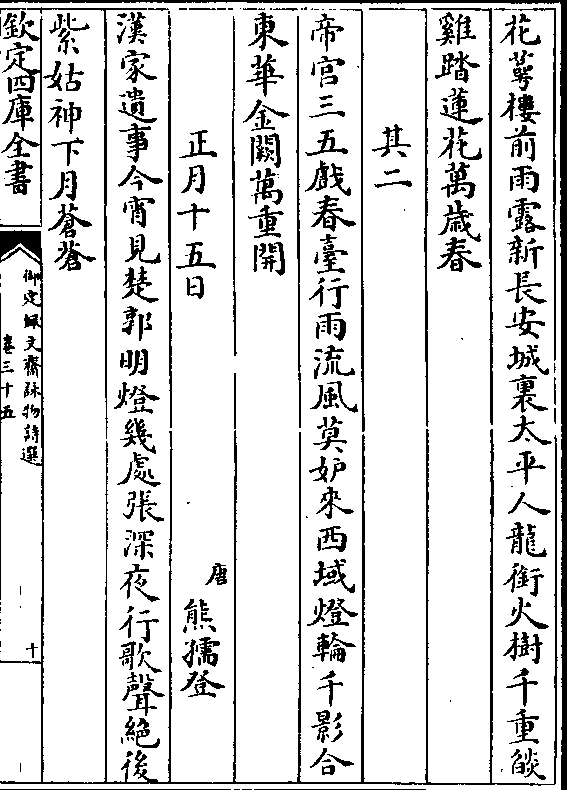 花萼樓前雨露新長安城裏太平人龍銜火樹千重燄
雞踏蓮花萬歲春
其二
帝宮三五戲春臺行雨流風莫妒來西域燈輪千影合
東華金闕萬重開
正月十五日
唐熊孺登
漢家遺事今宵見楚郭明燈幾處張深夜行歌聲絕後
紫姑神下月蒼蒼
欽定四庫全書
御定佩文齋詠物詩選
卷三十五
十